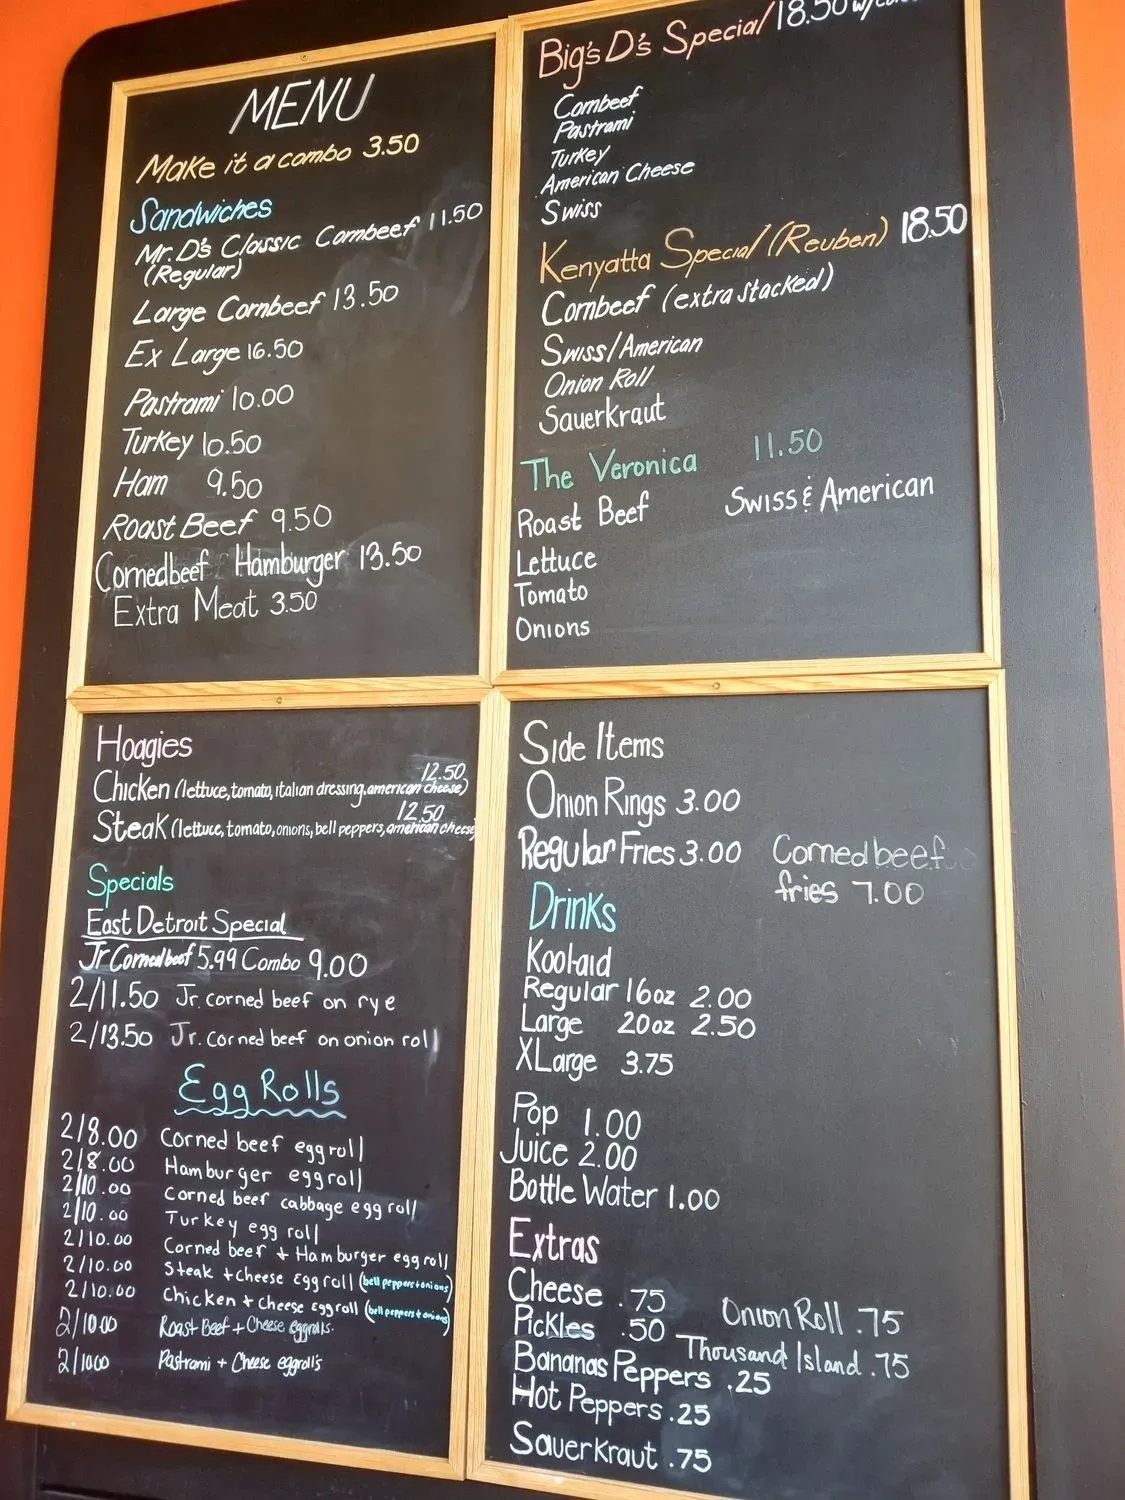 MENU
Make it a combo 3.50
Sandwiches
Mr. D's Classic Cornbeef 11.50
(Regular)
Large Cornbeef 13.50
Ex Large 16.50
Pastrami 10.00
Turkey 10.50
Ham 9.50
Roast Beef 9.50
Cornedbeef Hamburger 13.50
Extra Meat 3.50
Big's D's Special 18.50
Cornbeef
Pastrami
Turkey
American Cheese
Swiss
Kenyatta Special (Reuben) 18.50
Cornbeef (extra stacked)
Swiss/American
Onion Roll
Sauerkraut
The Veronica 11.50
Roast Beef Swiss & American
Lettuce
Tomato
Onions
Hoagies
12.50
Chicken (lettuce, tomato, italian dressing, american cheese)
12.50
Steak (lettuce, tomato, onions, bell peppers, american cheese
Specials
East Detroit Special
Jr Cornedbeef 5.99 Combo 9.00
2/11.50 Jr. corned beef on rye
2/13.50 Jr. corned beef on onion roll
Egg Rolls
2/8.00 Corned beef egg roll
2/8.00 Hamburger eggroll
2/10.00 Corned beef cabbage egg roll
2/10.00 Turkey egg roll
2/10.00 Corned beef + Hamburger egg roll
2/10.00 Steak + cheese Egg roll (bell peppers + onions)
2/10.00 Chicken + Cheese Eggroll (bell peppers + onions)
2/10.00 Roast Beef + Cheese eggrolls.
2/10.00 Pastrami + Cheese eggrolls
Side Items
Onion Rings 3.00
Regular Fries 3.00 Cornedbeef
fries 7.00
Drinks
Kool-aid
Regular 16oz 2.00
Large 20oz 2.50
XLarge 3.75
Pop 1.00
Juice 2.00
Bottle Water 1.00
Extras
Cheese .75 Onion Roll .75
Pickles .50 Thousand Island .75
Bananas Peppers .25
Hot Peppers .25
Sauerkraut .75